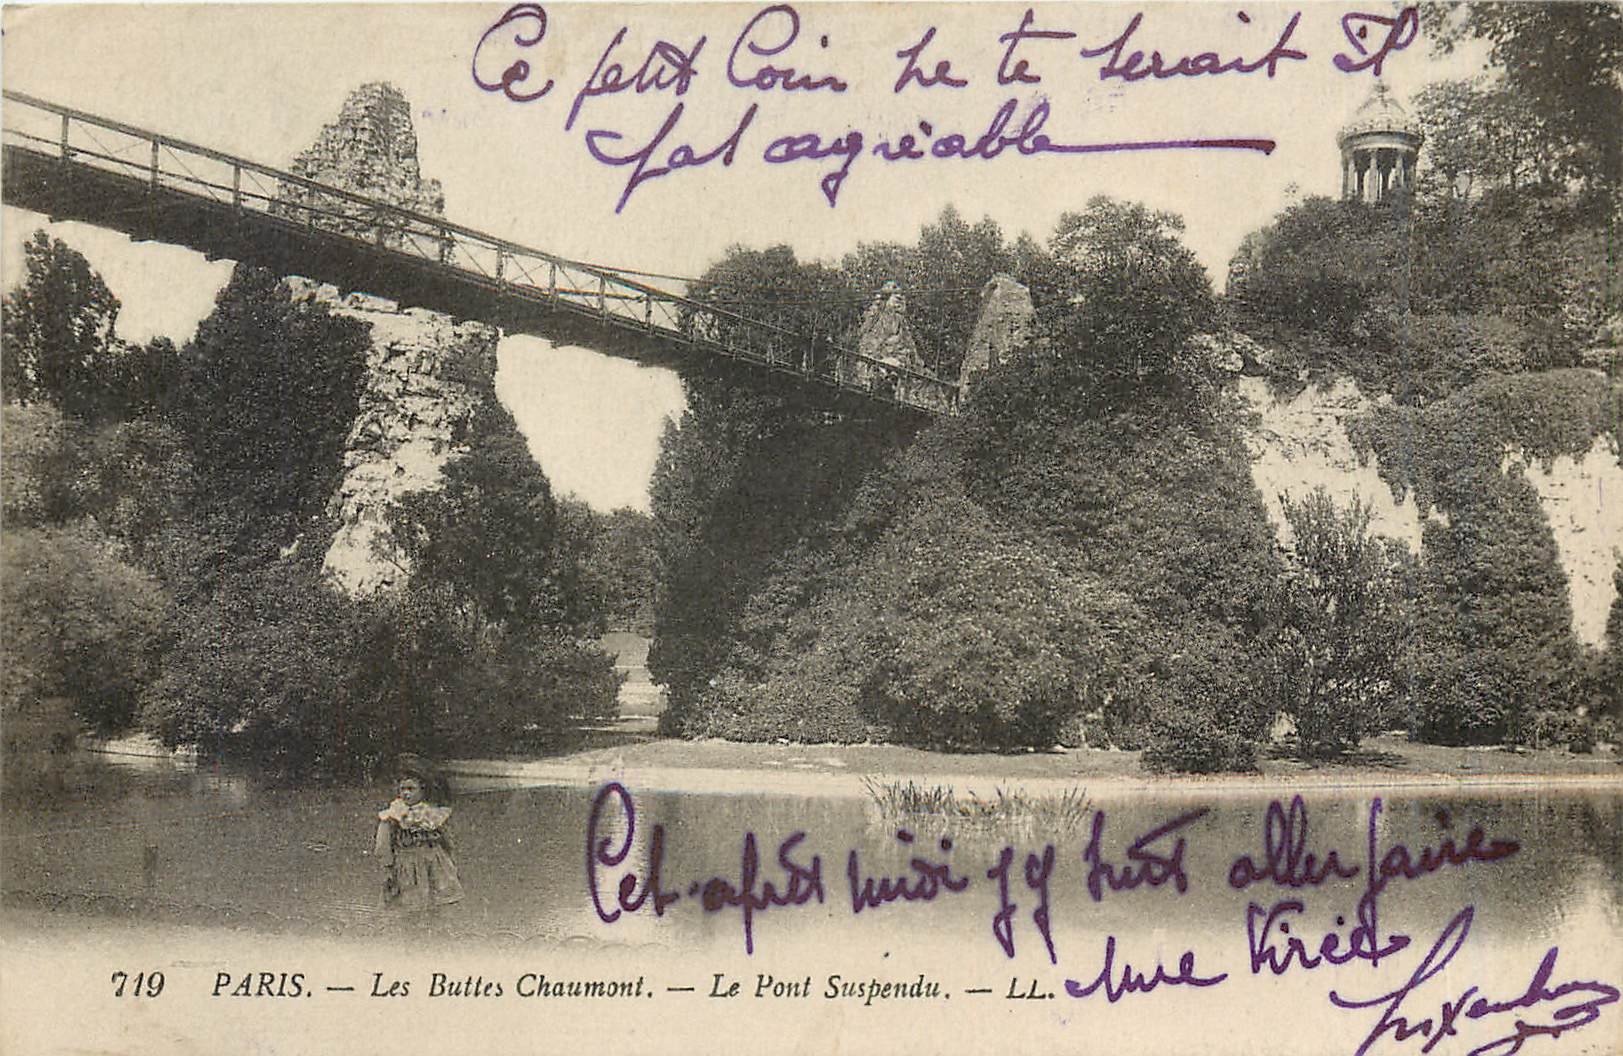 Ce petit Coin ne te serait il
pas agréable
Cet après midi j'y suis aller faire
une virée
719 PARIS. — Les Buttes Chaumont. — Le Pont Suspendu. — LL.